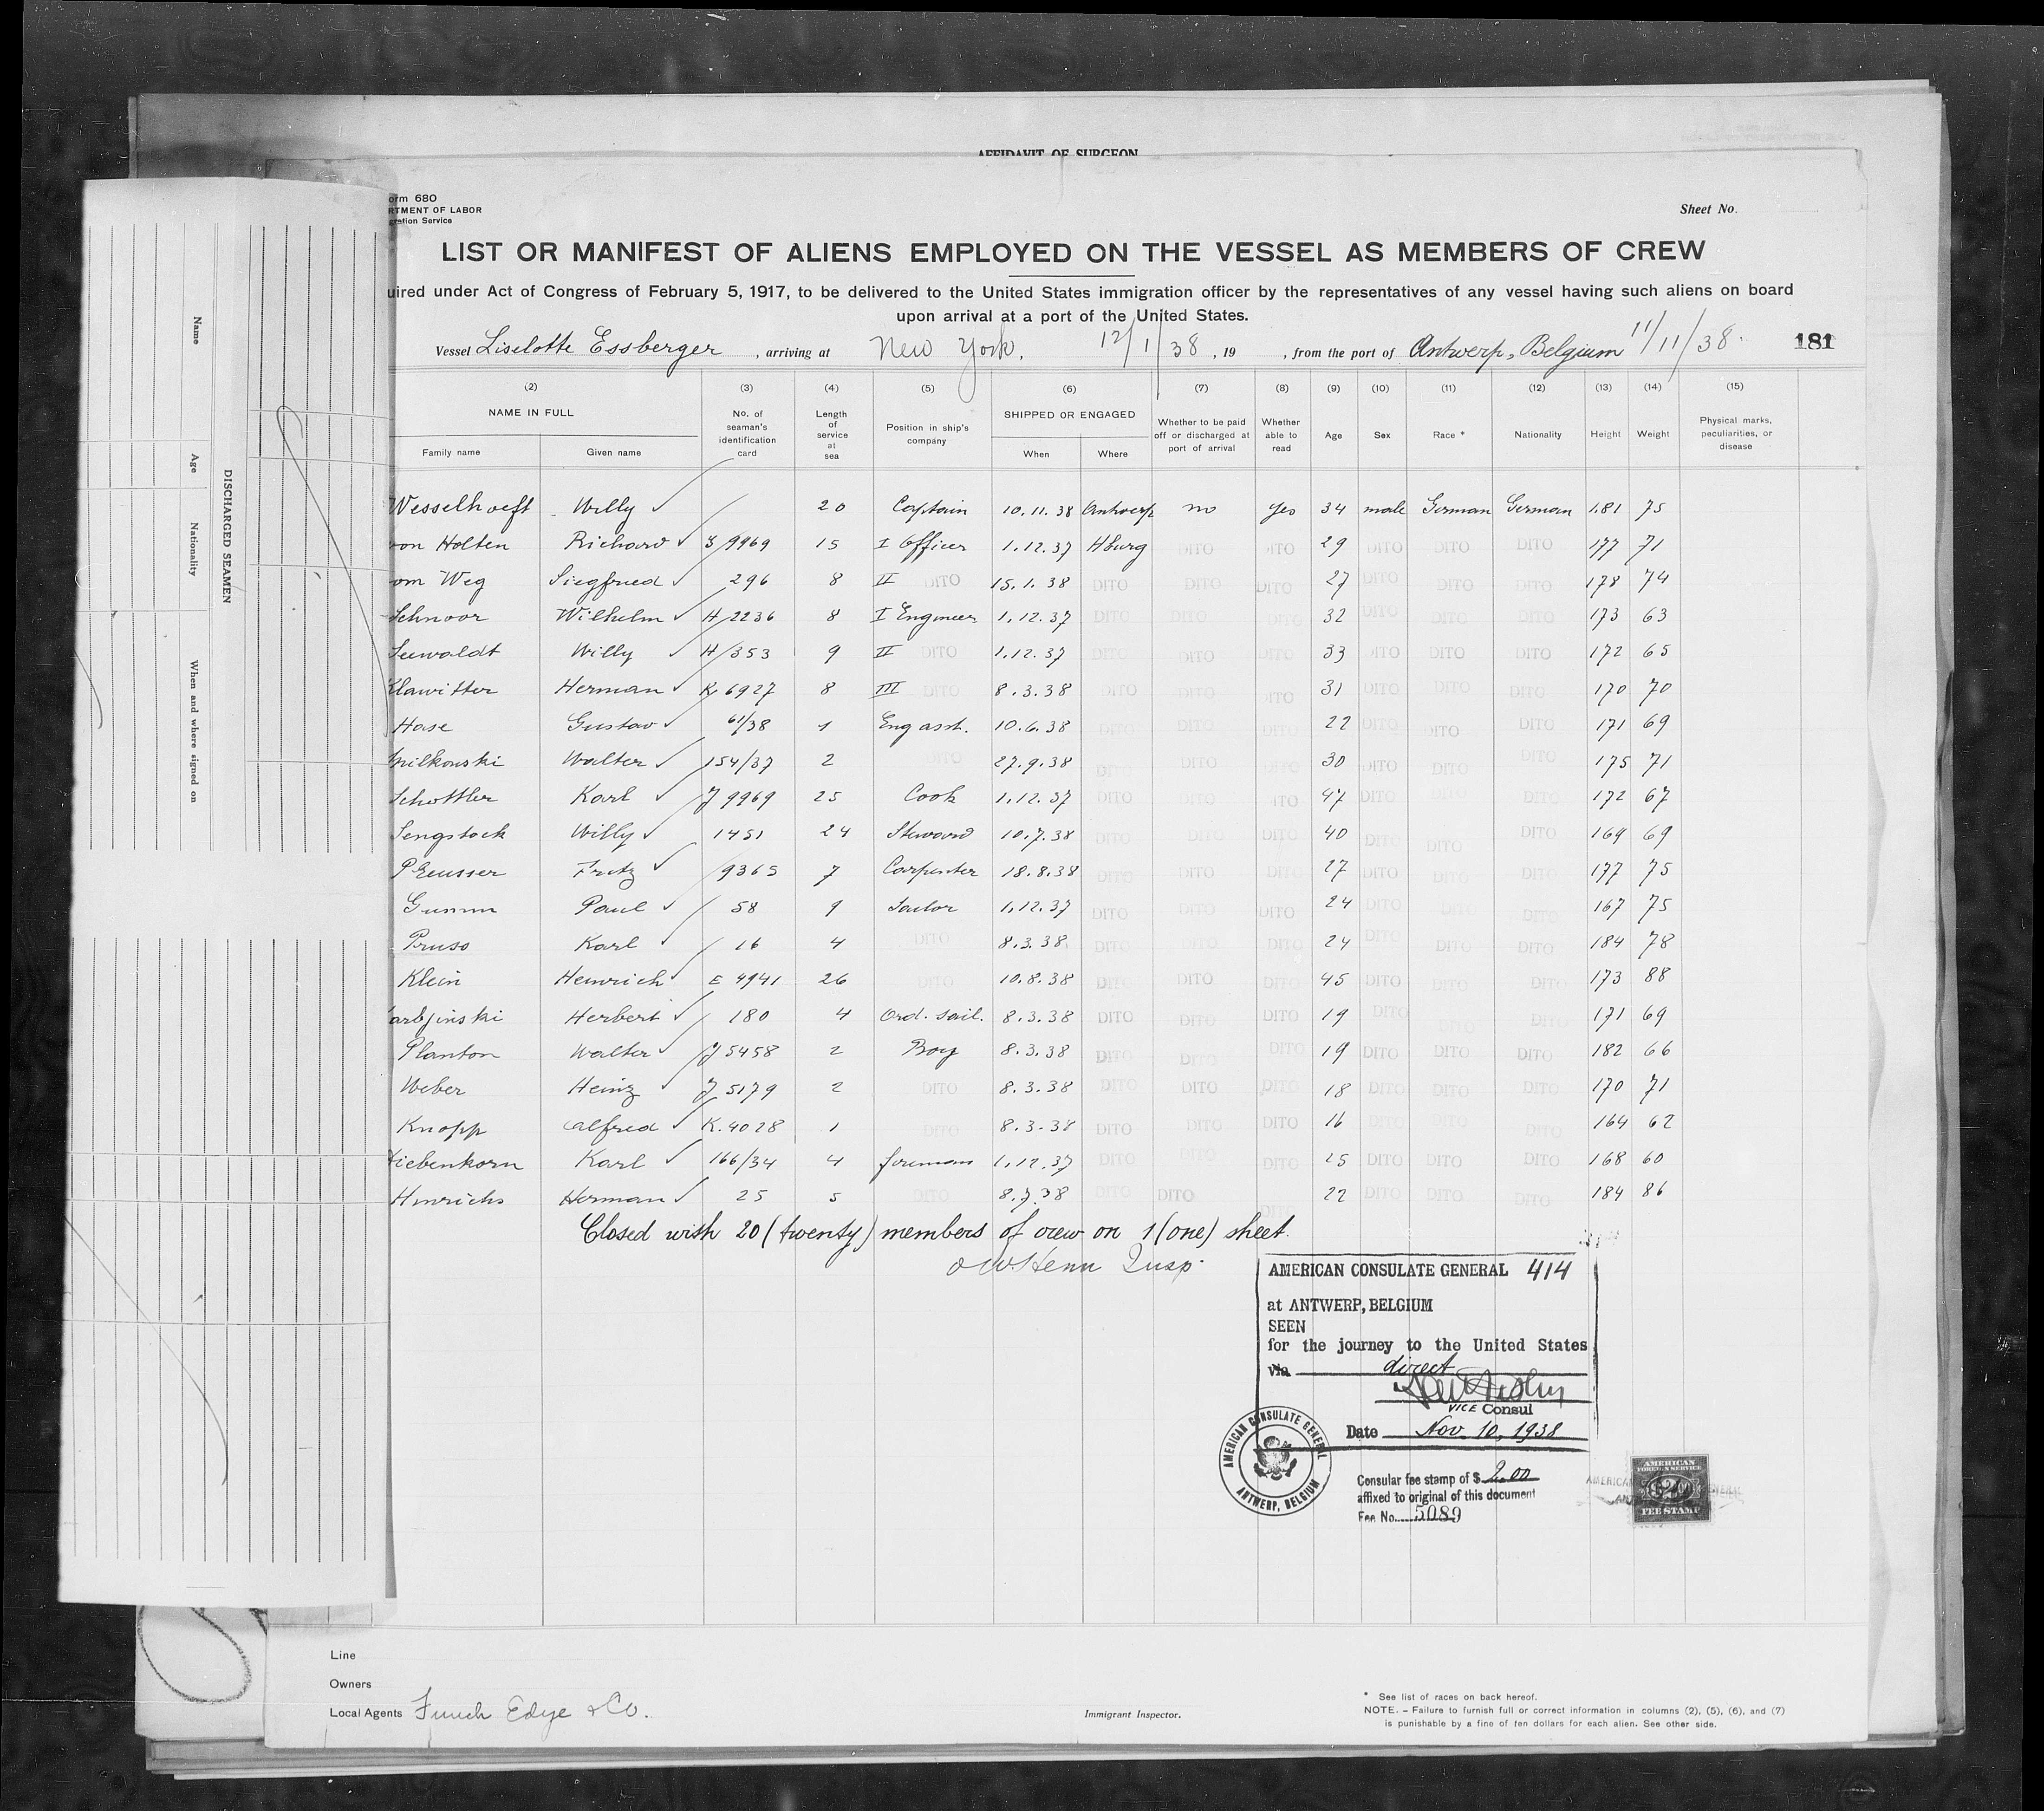 AFFIDAVIT OF SURGEON
orm 680
RTMENT OF LABOR
gration Service
Sheet No.
LIST OR MANIFEST OF ALIENS EMPLOYED ON THE VESSEL AS MEMBERS OF CREW
uired under Act of Congress of February 5, 1917, to be delivered to the United States immigration officer by the representatives of any vessel having such aliens on board
upon arrival at a port of the United States.
Vessel Liselotte Essberger, arriving at New York, 12/1/38, 19 , from the port of Antwerp, Belgium 11/11/38. 181
(2) (3) (4) (5) (6) (7) (8) (9) (10) (11) (12) (13) (14) (15)
NAME IN FULL No. of seaman's identification card Length of service at sea Position in ship's company SHIPPED OR ENGAGED Whether to be paid off or discharged at port of arrival Whether able to read Age Sex Race * Nationality Height Weight Physical marks, peculiarities, or disease
Family name Given name When Where
Wesselhoeft Willy 20 Captain 10.11.38 Antwerp no yes 34 male German German 1.81 75
von Holten Richard 9969 15 I Officer 1.12.37 Hburg DITO DITO 29 DITO DITO DITO 177 71
om Weg Siegfried 296 8 II DITO 15.1.38 DITO DITO DITO 27 DITO DITO DITO 178 74
Schnoor Wilhelm H/2236 8 I Engineer 1.12.37 DITO DITO DITO 32 DITO DITO DITO 173 63
Seewaldt Willy H/353 9 II DITO 1.12.37 DITO DITO DITO 33 DITO DITO DITO 172 65
Klawitter Herman K 6927 8 III DITO 8.3.38 DITO DITO DITO 31 DITO DITO DITO 170 70
Hase Gustav 61/38 1 Eng asst. 10.6.38 DITO DITO DITO 22 DITO DITO DITO 171 69
Walter 154/37 2 DITO 27.9.38 DITO DITO DITO 30 DITO DITO DITO 175 71
Schottler Karl J 9969 25 Cook 1.12.37 DITO DITO DITO 47 DITO DITO DITO 172 67
Sengstock Willy 1451 24 Steward 10.7.38 DITO DITO DITO 40 DITO DITO DITO 169 69
Preusser Fritz 9365 7 Carpenter 18.8.38 DITO DITO DITO 27 DITO DITO DITO 177 75
Gumm Paul 58 9 Sailor 1.12.37 DITO DITO DITO 24 DITO DITO DITO 167 75
Pruso Karl 16 4 DITO 8.3.38 DITO DITO DITO 24 DITO DITO DITO 184 78
Klein Heinrich E 4941 26 DITO 10.8.38 DITO DITO DITO 45 DITO DITO DITO 173 88
Herbert 180 4 Ord. sail. 8.3.38 DITO DITO DITO 19 DITO DITO DITO 171 69
Planton Walter J 5458 2 Boy 8.3.38 DITO DITO DITO 19 DITO DITO DITO 182 66
Weber Heinz J 5179 2 DITO 8.3.38 DITO DITO DITO 18 DITO DITO DITO 170 71
Knopp Alfred K. 4028 1 DITO 8.3.38 DITO DITO DITO 16 DITO DITO DITO 164 62
iebenkorn Karl 166/34 4 foreman 1.12.37 DITO DITO DITO 25 DITO DITO DITO 168 60
Hinrichs Herman 25 5 DITO 8.7.38 DITO DITO DITO 22 DITO DITO DITO 184 86
Closed with 20 (twenty) members of crew on 1 (one) sheet.
Insp.
AMERICAN CONSULATE GENERAL 414
at ANTWERP, BELGIUM
SEEN
for the journey to the United States
via direct
VICE Consul
Date Nov. 10, 1938
AMERICAN CONSULATE GENERAL
ANTWERP, BELGIUM
Consular fee stamp of $ 2.00
affixed to original of this document
Fee No. 5089
AMERICAN
FOREIGN SERVICE
$2.00
FEE STAMP
DISCHARGED SEAMEN
Name Age Nationality When and where signed on
Line
Owners
Local Agents Funch Edye & Co.
Immigrant Inspector.
* See list of races on back hereof.
NOTE. – Failure to furnish full or correct information in columns (2), (5), (6), and (7)
is punishable by a fine of ten dollars for each alien. See other side.